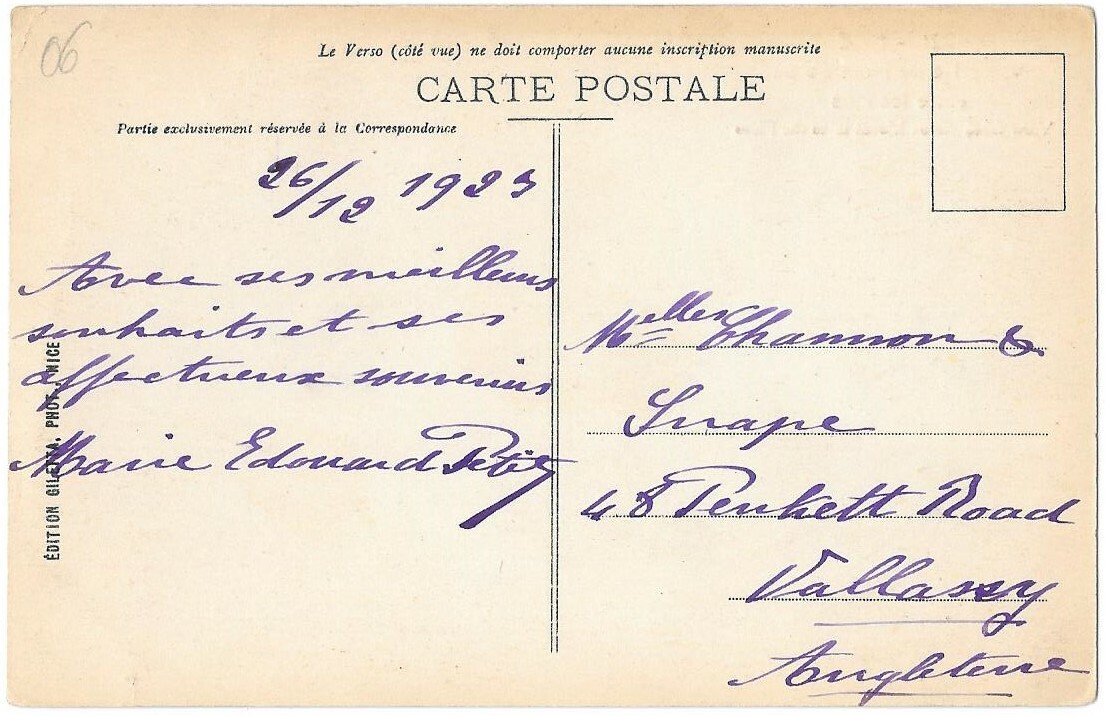 06
Le Verso (côté vue) ne doit comporter aucune inscription manuscrite
CARTE POSTALE
Partie exclusivement réservée à la Correspondance
26/12 1923
Avec ses meilleurs
souhaits et ses
affectueux souvenirs
Marie Edouard Petit
ÉDITION GILETTA, PHOT., NICE
Melles Channon &
Snape
48 Penkett Road
Vallassy
Angleterre